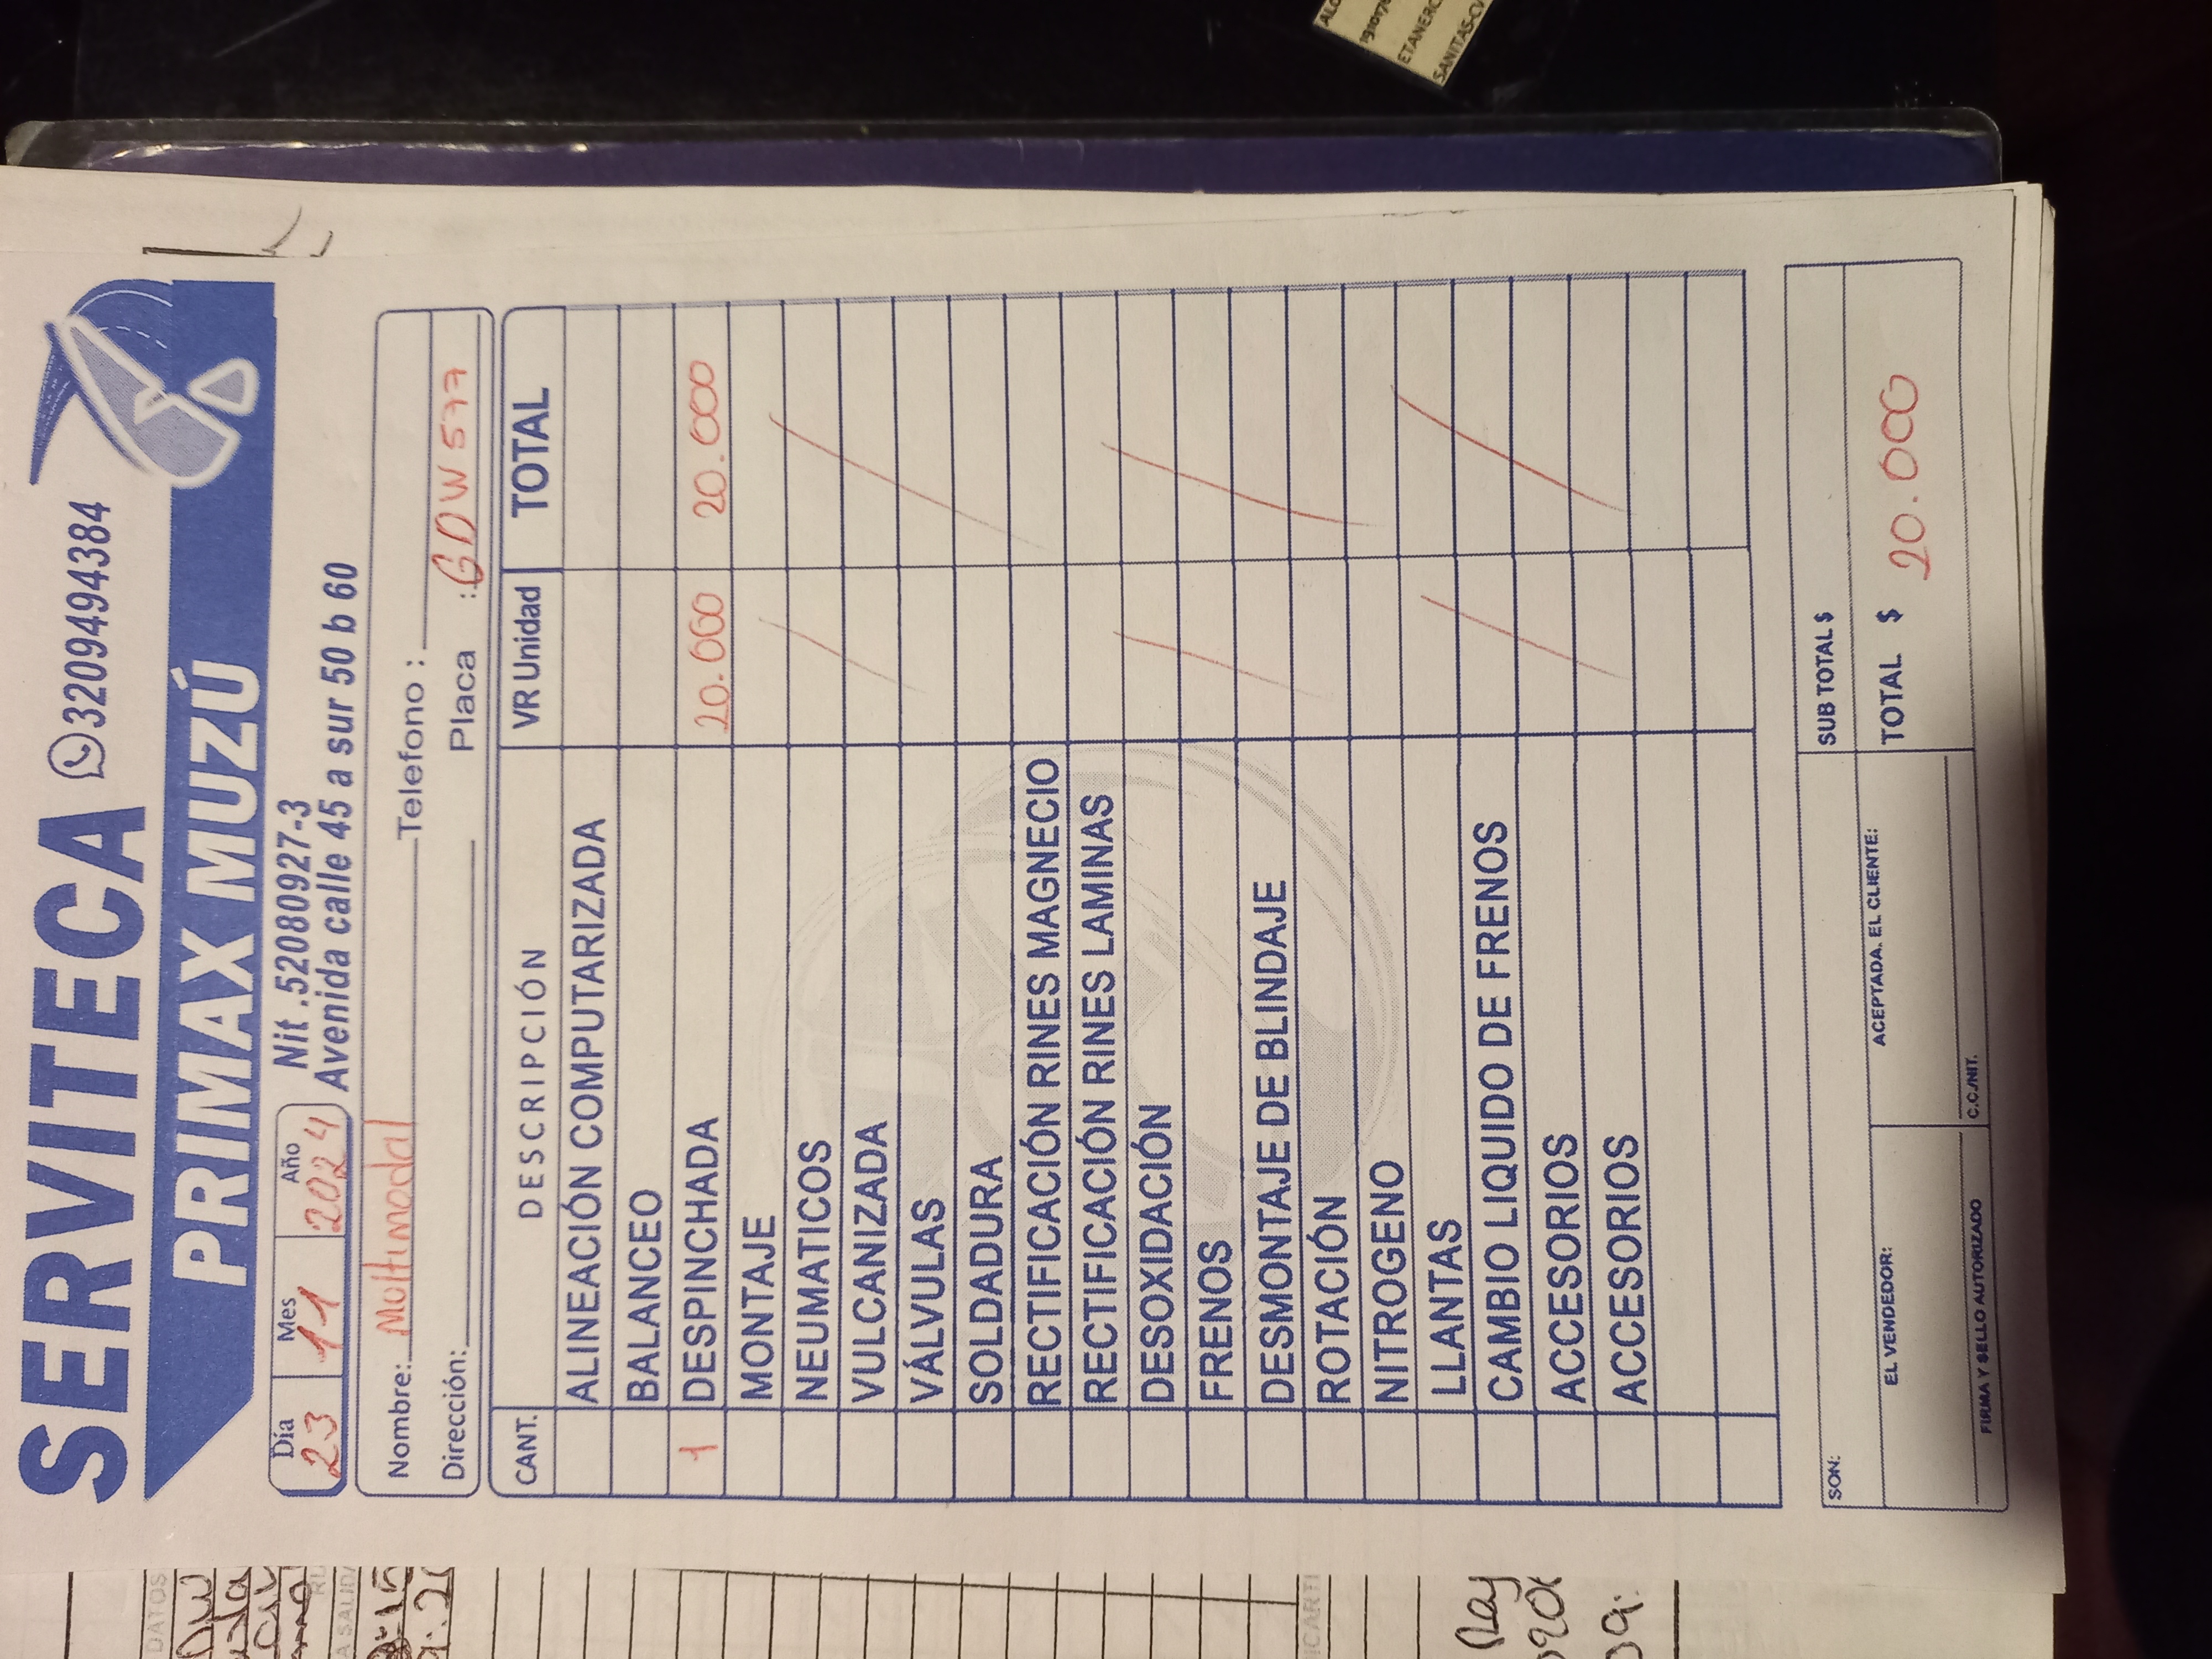 SERVITECA 3209494384
PRIMAX MUZÚ
Día Mes Año
23 11 2024
Nit .52080927-3
Avenida calle 45 a sur 50 b 60
Nombre: Multimodal Telefono :
Dirección: Placa : GDW577
CANT. DESCRIPCIÓN VR Unidad TOTAL
ALINEACIÓN COMPUTARIZADA
BALANCEO
1 DESPINCHADA 20.000 20.000
MONTAJE
NEUMATICOS
VULCANIZADA
VÁLVULAS
SOLDADURA
RECTIFICACIÓN RINES MAGNECIO
RECTIFICACIÓN RINES LAMINAS
DESOXIDACIÓN
FRENOS
DESMONTAJE DE BLINDAJE
ROTACIÓN
NITROGENO
LLANTAS
CAMBIO LIQUIDO DE FRENOS
ACCESORIOS
ACCESORIOS
SON: SUB TOTAL $
EL VENDEDOR: ACEPTADA. EL CLIENTE: TOTAL $ 20.000
FIRMA Y SELLO AUTORIZADO C.C./NIT.
DATOS